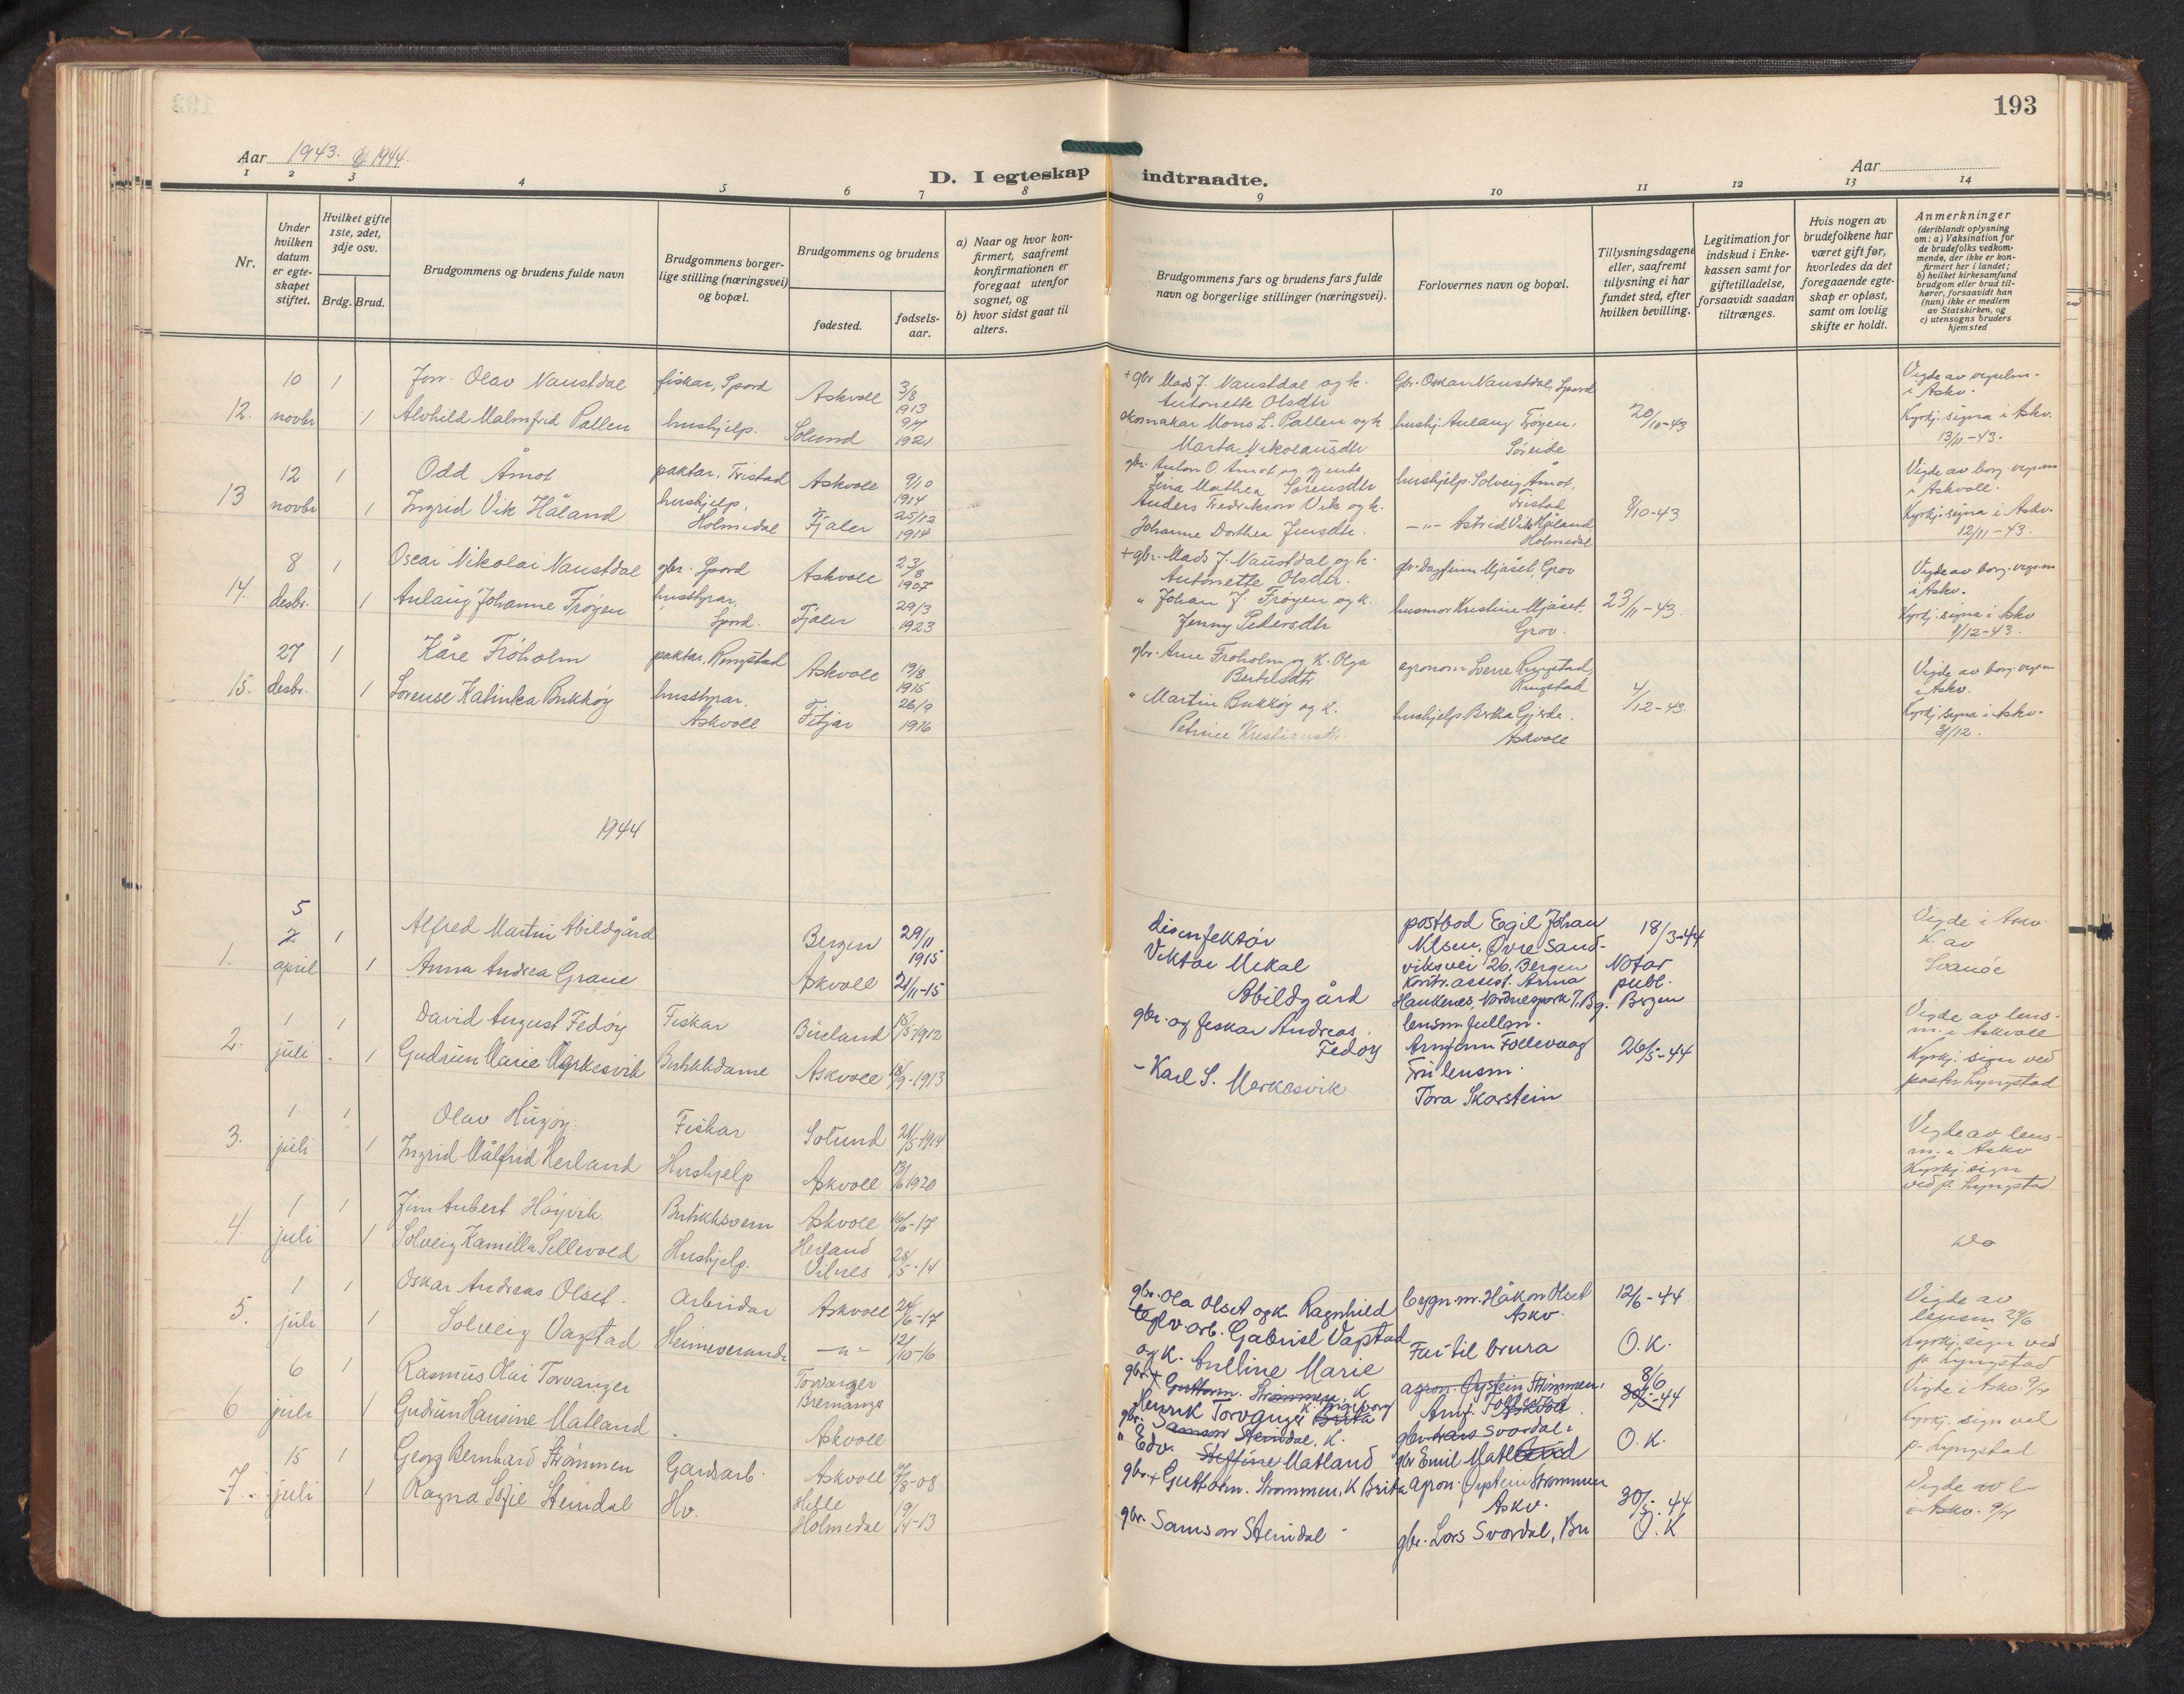 193
Aar 1943. og 1944.
D. I egteskap indtraadte.
Aar
1 2 3 4 5 6 7 8 9 10 11 12 13 14
Nr.
Under hvilken datum er egte-skapet stiftet.
Hvilket gifte 1ste, 2det, 3dje osv.
Brdg. Brud.
Brudgommens og brudens fulde navn
Brudgommens borger-
lige stilling (næringsvei)
og bopæl.
Brudgommens og brudens
fødested.
fødsels-
aar.
a) Naar og hvor kon-
firmert, saafremt
konfirmationen er
foregaat utenfor
sognet, og
b) hvor sidst gaat til
alters.
Brudgommens fars og brudens fars fulde
navn og borgerlige stillinger (næringsvei).
Forlovernes navn og bopæl.
Tillysningsdagene
eller, saafremt
tillysning ei har
fundet sted, efter
hvilken bevilling.
Legitimation for
indskud i Enke-
kassen samt for
giftetilladelse,
forsaavidt saadan
tiltrænges.
Hvis nogen av
brudefolkene har
været gift før,
hvorledes da det
foregaaende egte-
skap er opløst,
samt om lovlig
skifte er holdt.
Anmerkninger
(deriblandt oplysning
om: a) Vaksination for
de brudefolks vedkom-
mende, der ikke er kon-
firmert her i landet;
b) hvilket kirkesamfund
brudgom eller brud til-
hører, forsaavidt han
(hun) ikke er medlem
av Statskirken, og
c) utensogns bruders
hjemsted
12. 10 novbr 1 Olav Naustdal fiskar, Spord Askvoll 3/8 1913
+ gbr Mads J. Naustdal og k. Antonette Olsdtr
Gbr. Oskar Naustdal, Spord
Vigde av
i Askv.
1 Alvhild Malmfrid Pallen hushjelp. Solund 1921
skomakar Mons L. Pallen og k Marta Nikolausdtr
hushj. Anlaug Frøyen, Søreide
20/10-43
Kyrkj. signa i Askv. 13/11-43.
13 12 novbr 1 Odd Åmot paktar, Tristad Askvoll 9/10 1914
gbr. Anton O. Åmot og gjente Lina Mathea Sørensdtr
hushjelp Solveig Åmot, Tristad
Vigde av borg. vigsm i Askvoll.
1 Ingrid Vik Håland hushjelp, Holmedal Fjaler 25/12 1914
Anders Fredrikson Vik og k. Johanne Dorthea Jensdtr.
-"- Astrid Vik Håland Holmedal
8/10-43
Kyrkj. signa i Askv. 12/11-43.
14. 8 desbr. 1 Oscar Nikolai Naustdal gbr. Spord Askvoll 23/8 1907
+ gbr. Mads J. Naustdal og k. Antonette Olsdtr.
gbr. Dagfinn Mjåset, Grov
Vigde av borg. vigsm i Askv.
1 Anlaug Johanne Frøyen husstyrar, Spord. Fjaler 29/3 1923
" Johan J. Frøyen og k. Jenny Pedersdtr
husmor Kristine Mjåset. Grov.
23/11-43.
Kyrkj. signa i Askv
15. 27 desbr. 1 Kåre Frøholm paktar, Ringstad Askvoll 19/8 1915
gbr. Arne Frøholm og K. Olga Bertelsdtr
agronom Sverre Ringstad, Ringstad
Vigde av borg. vigsm i Askv.
1 Sørense Katinka Bukkøy husstyrar. Askvoll Fitjar 26/9 1916
" Martin Bukkøy og k. Petrine Kristiansdtr.
hushjelp Berta Gjerde, Askvoll
4/12-43.
Kyrkj. signa i Askv. 31/12.
1944
1. 5 april 1 Alfred Martin Abildgård Bergen 29/11 1915
disinfektør Viktor Mekal Abildgård
postbod Egil Johan Nilsen, Øvre Sand-viksvei 26. Bergen
18/3-44 Notar publ. Bergen
Vigde i Askv. k. av Svanøe
1 Anna Andrea Gravie Askvoll 21/11-15
Kontr. assist. Anna Haukenes, Nordnespark 7. Bg.
2. 1 juli 1 David August Fedøy Fiskar Bueland 1912
gbr. og fiskar Andreas Fedøy
lensm. fullm. Arnfinn Follevaag
26/5-44
Vigde av lens-m. i Askvoll
1 Gudrun Marie Markesvik Butikkdame Askvoll 9-1913
- Karl S. Markesvik
Fru lensm. Tora Skarstein
Kyrkj. sign ved pastor Lyngstad
3. 1 juli 1 Olav Husøy. Fiskar Solund 21/5-1914
Vigde av lens-m. i Askv
1 Ingrid Målfrid Herland Hushjelp Askvoll 13/6 1920
Kyrkj. sign ved p. Lyngstad
4. 1 juli 1 Jim Aubert Høyvik. Butikksvein Askvoll 16/6-17
1 Solveig Kamilla Sellevold Hushjelp. Herland Vilnes 28/5-14
do
5. 1 juli 1 Oskar Andreas Olset. Arbeidar Askvoll 24/6-17
gbr. Ola Olset og k. Ragnhild
bygn.m. Håkon Olset Askv.
12/6-44
Vigde av lensm 29/6
1 Solveig Vagstad Heimeverande -"- 12/10-16
teglv. arb. Gabriel Vagstad og k. Gulline Marie
Far til brura
O.K.
Kyrkj. sign ved p. Lyngstad
6 6 juli 1 Rasmus Olai Torvanger Torvanger Bremanger
gbr. + Guttorm. Strømmen, K
Henrik Torvanger K. Ingeborg Brita
agron. Øystein Strømmen,
Arnf. Follevåg Askvoll
8/6 30/5-44
Vigde i Askv. 9/7
1 Gudrun Hansine Matland Askvoll
gbr. Samson Steindal, K.
" Edv. Steffine Matland
gbr. Lars Svardal,
gbr Emil Matland
O.K.
Kyrkj. sign ved p. Lyngstad
7. 15 juli 1 Georg Bernhard Strømmen Gardsarb. Askvoll 8-08
gbr. + Guttorm. Strømmen, K Brita
agron. Øystein Strømmen Askv.
30/5-44
Vigde av l
i Askv. 9/7
1 Ragna Sofie Steindal Hv. Hille Holmedal 19/4-13
gbr. Samson Steindal
gbr. Lars Svardal, Bu
O.K